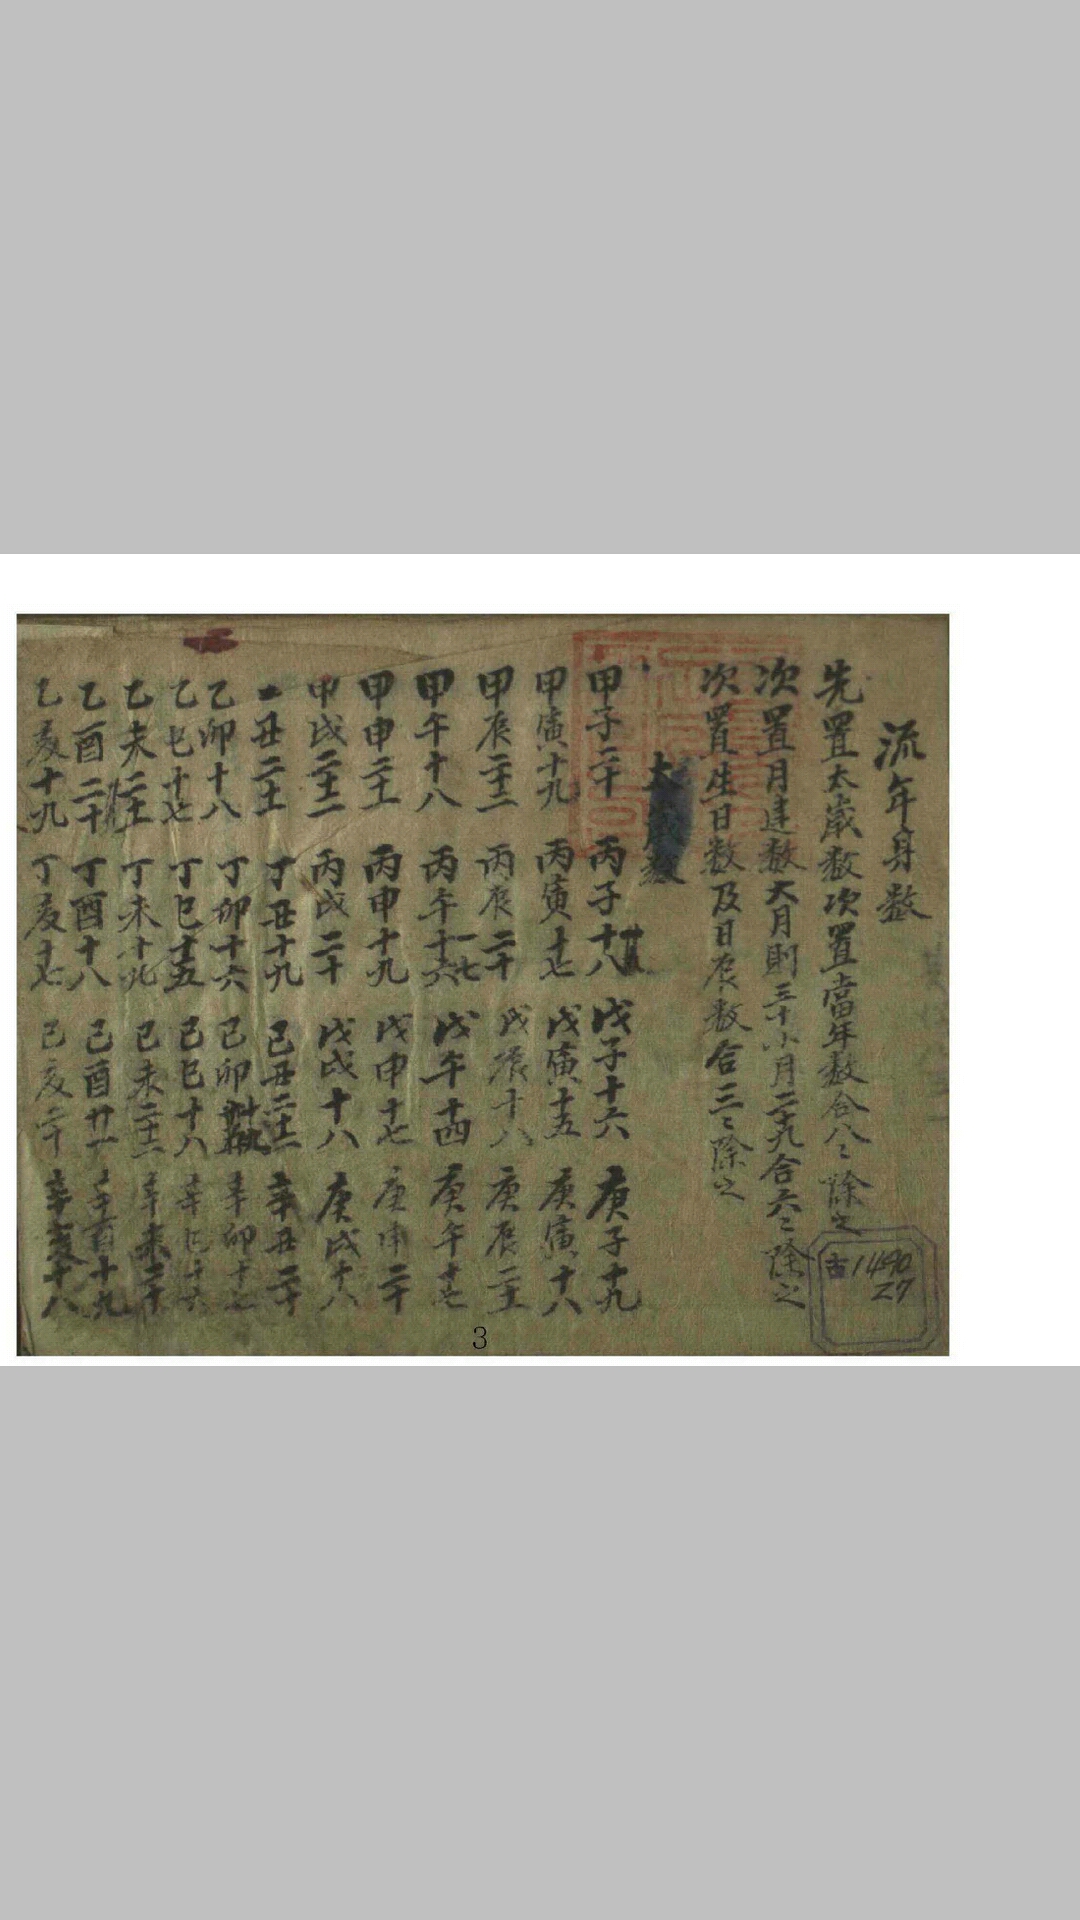 流年身数
先置太歲数次置當年数合八〻除之
次置月建数大月則三十小月二十九合六〻除之
次置生日数及日辰数合三〻除之
太歲数
甲子二十 丙子十八 戊子十六 庚子十九
甲寅十九 丙寅十七 戊寅十五 庚寅十八
甲辰二十二 丙辰二十 戊辰十八 庚辰二十一
甲午十八 丙午十六 戊午十四 庚午十七
甲申二十一 丙申十九 戊申十七 庚申二十
甲戌二十二 丙戌二十 戊戌十八 庚戌十八
丑二十一 丁丑十九 己丑二十二 辛丑二十
乙卯十八 丁卯十六 己卯十九 辛卯十七
乙巳十七 丁巳十五 己巳十八 辛巳十六
乙未二十一 丁未十九 己未二十二 辛未二十
乙酉二十 丁酉十八 己酉廿一 辛酉十九
乙亥十九 丁亥十七 己亥二十 辛亥十八
古1490
27
3